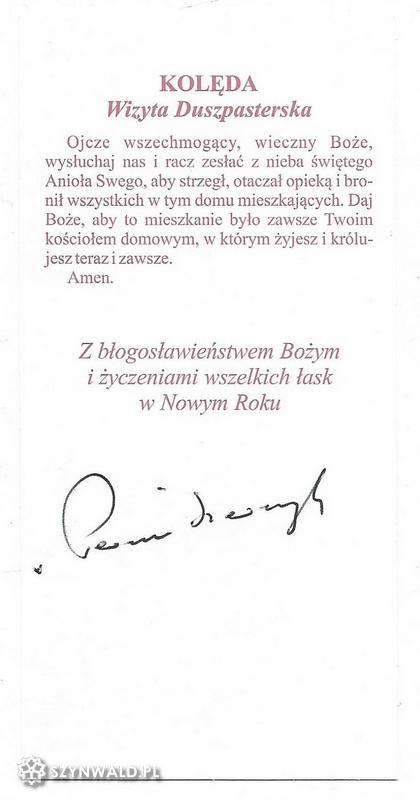 KOLĘDA
Wizyta Duszpasterska
Ojcze wszechmogący, wieczny Boże,
wysłuchaj nas i racz zesłać z nieba świętego
Anioła Swego, aby strzegł, otaczał opieką i bro-
nił wszystkich w tym domu mieszkających. Daj
Boże, aby to mieszkanie było zawsze Twoim
kościołem domowym, w którym żyjesz i królu-
jesz teraz i zawsze.
Amen.
Z błogosławieństwem Bożym
i życzeniami wszelkich łask
w Nowym Roku
SZYNWALD.PL